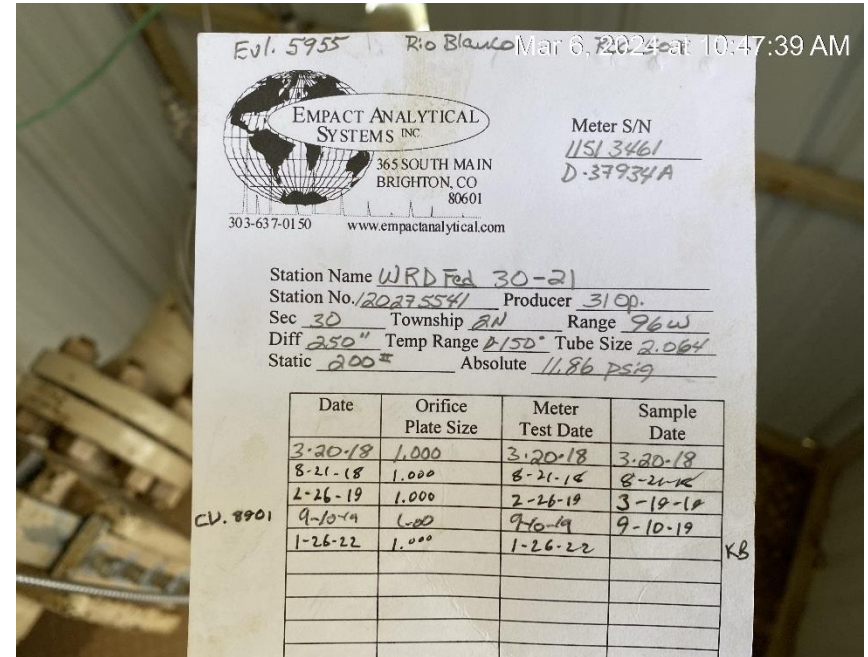 Evl. 5955 Rio Blanco
Mar 6, 2024 at 10:47:39 AM
EMPACT ANALYTICAL
SYSTEMS INC
365 SOUTH MAIN
BRIGHTON, CO
80601
303-637-0150 www.empactanalytical.com
Meter S/N
11513461
D-37934A
Station Name WRD Fed 30-21
Station No. 120275541 Producer 31 Op.
Sec 30 Township 2N Range 96W
Diff 250" Temp Range 0-150° Tube Size 2.064
Static 200# Absolute 11.86 psig
Date Orifice Plate Size Meter Test Date Sample Date
3-20-18 1.000 3-20-18 3-20-18
8-21-18 1.000 8-21-18 8-21-18
2-26-19 1.000 2-26-19 3-19-19
CU. 8901 9-10-19 1.00 9-10-19 9-10-19
1-26-22 1.000 1-26-22 KB